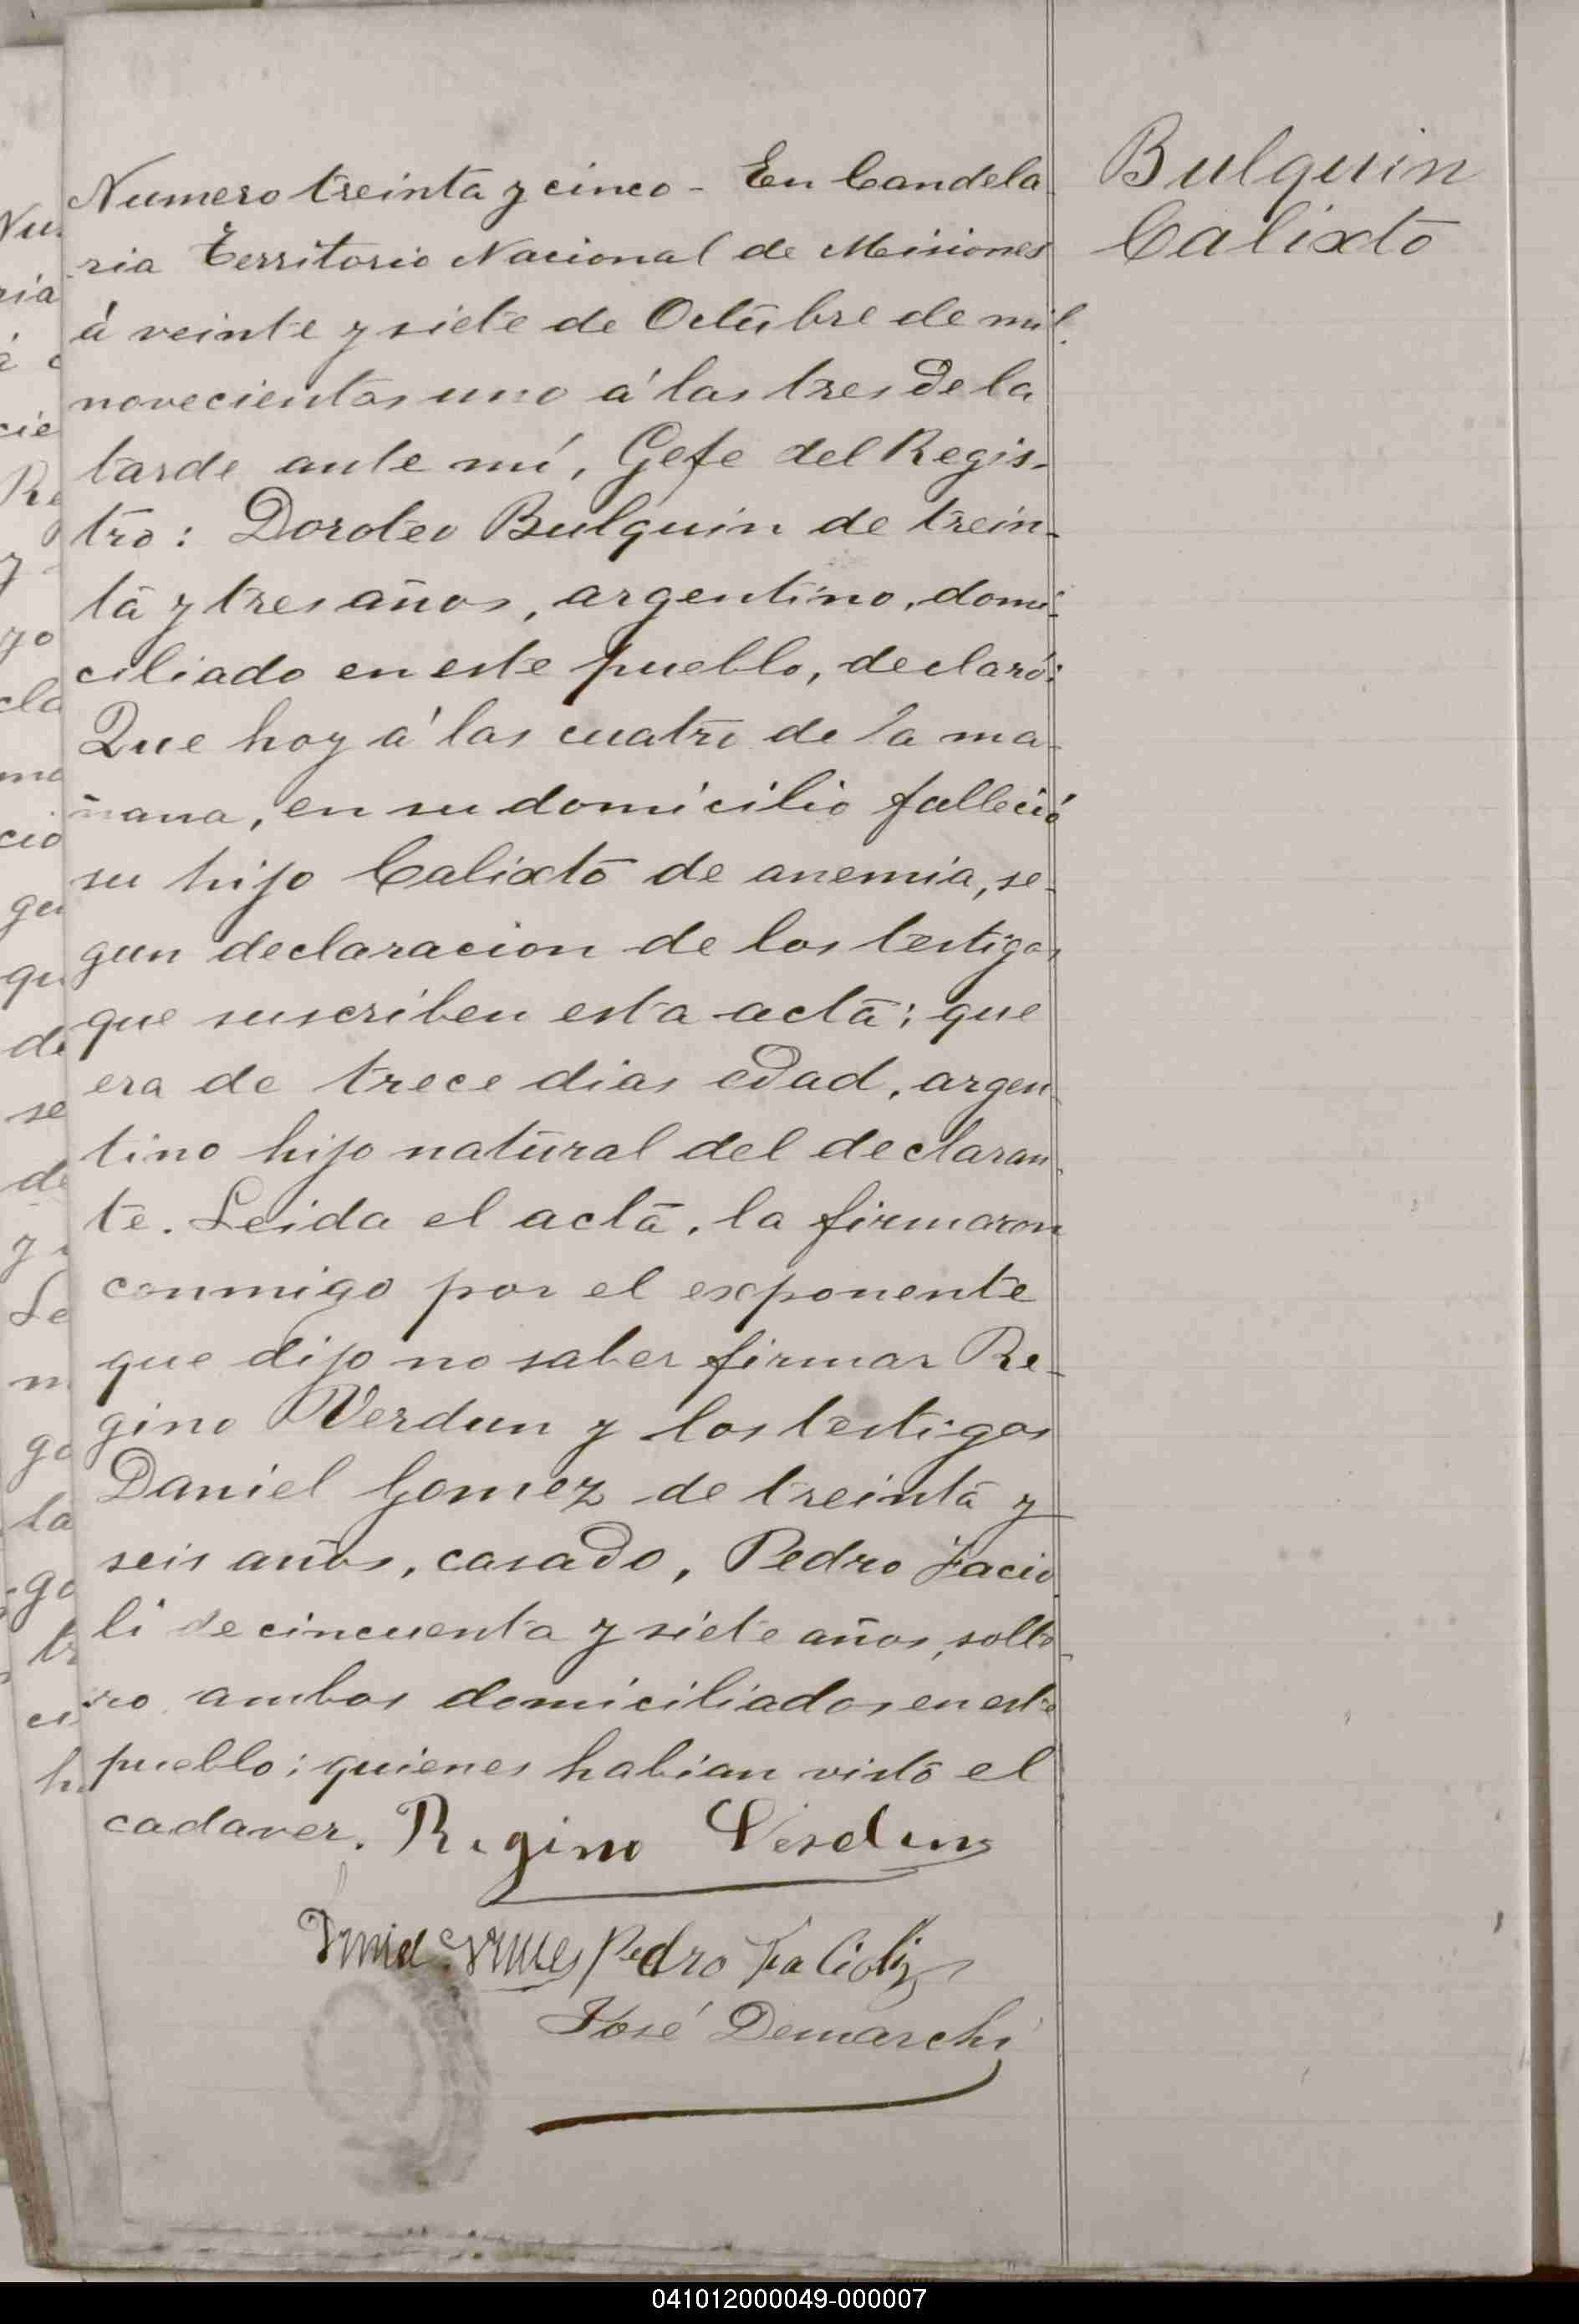 Numero treinta y cinco - En Candela-
ria Territorio Nacional de Misiones
á veinte y siete de Octubre de mil
novecientos uno á las tres de la
tarde ante mí, Gefe del Regis-
tro: Doroteo Bulquin de trein-
ta y tres años, argentino, domi-
ciliado en este pueblo, declaró:
Que hoy á las cuatro de la ma-
ñana, en su domicilio falleció
su hijo Calixto de anemia, se-
gun declaracion de los testigos
que suscriben esta acta; que
era de trece dias edad, argen-
tino hijo natural del declaran-
te. Leida el acta, la firmaron
conmigo por el exponente
que dijo no saber firmar Re-
gino Verdun y los testigos
Daniel Gomez de treinta y
seis años, casado, Pedro Facio
li de cincuenta y siete años, solte-
ro ambos domiciliados en este
pueblo; quienes habian visto el
cadaver. Regino Verdun
Pedro Facioli
José Demarchi
Bulquin
Calixto
Nu
ria
á c
cie
Re
y
yo
cla
ma
cio
gu
qu
de
se
de
y
Le
m
go
la
go
tr
ci
h
041012000049-000007